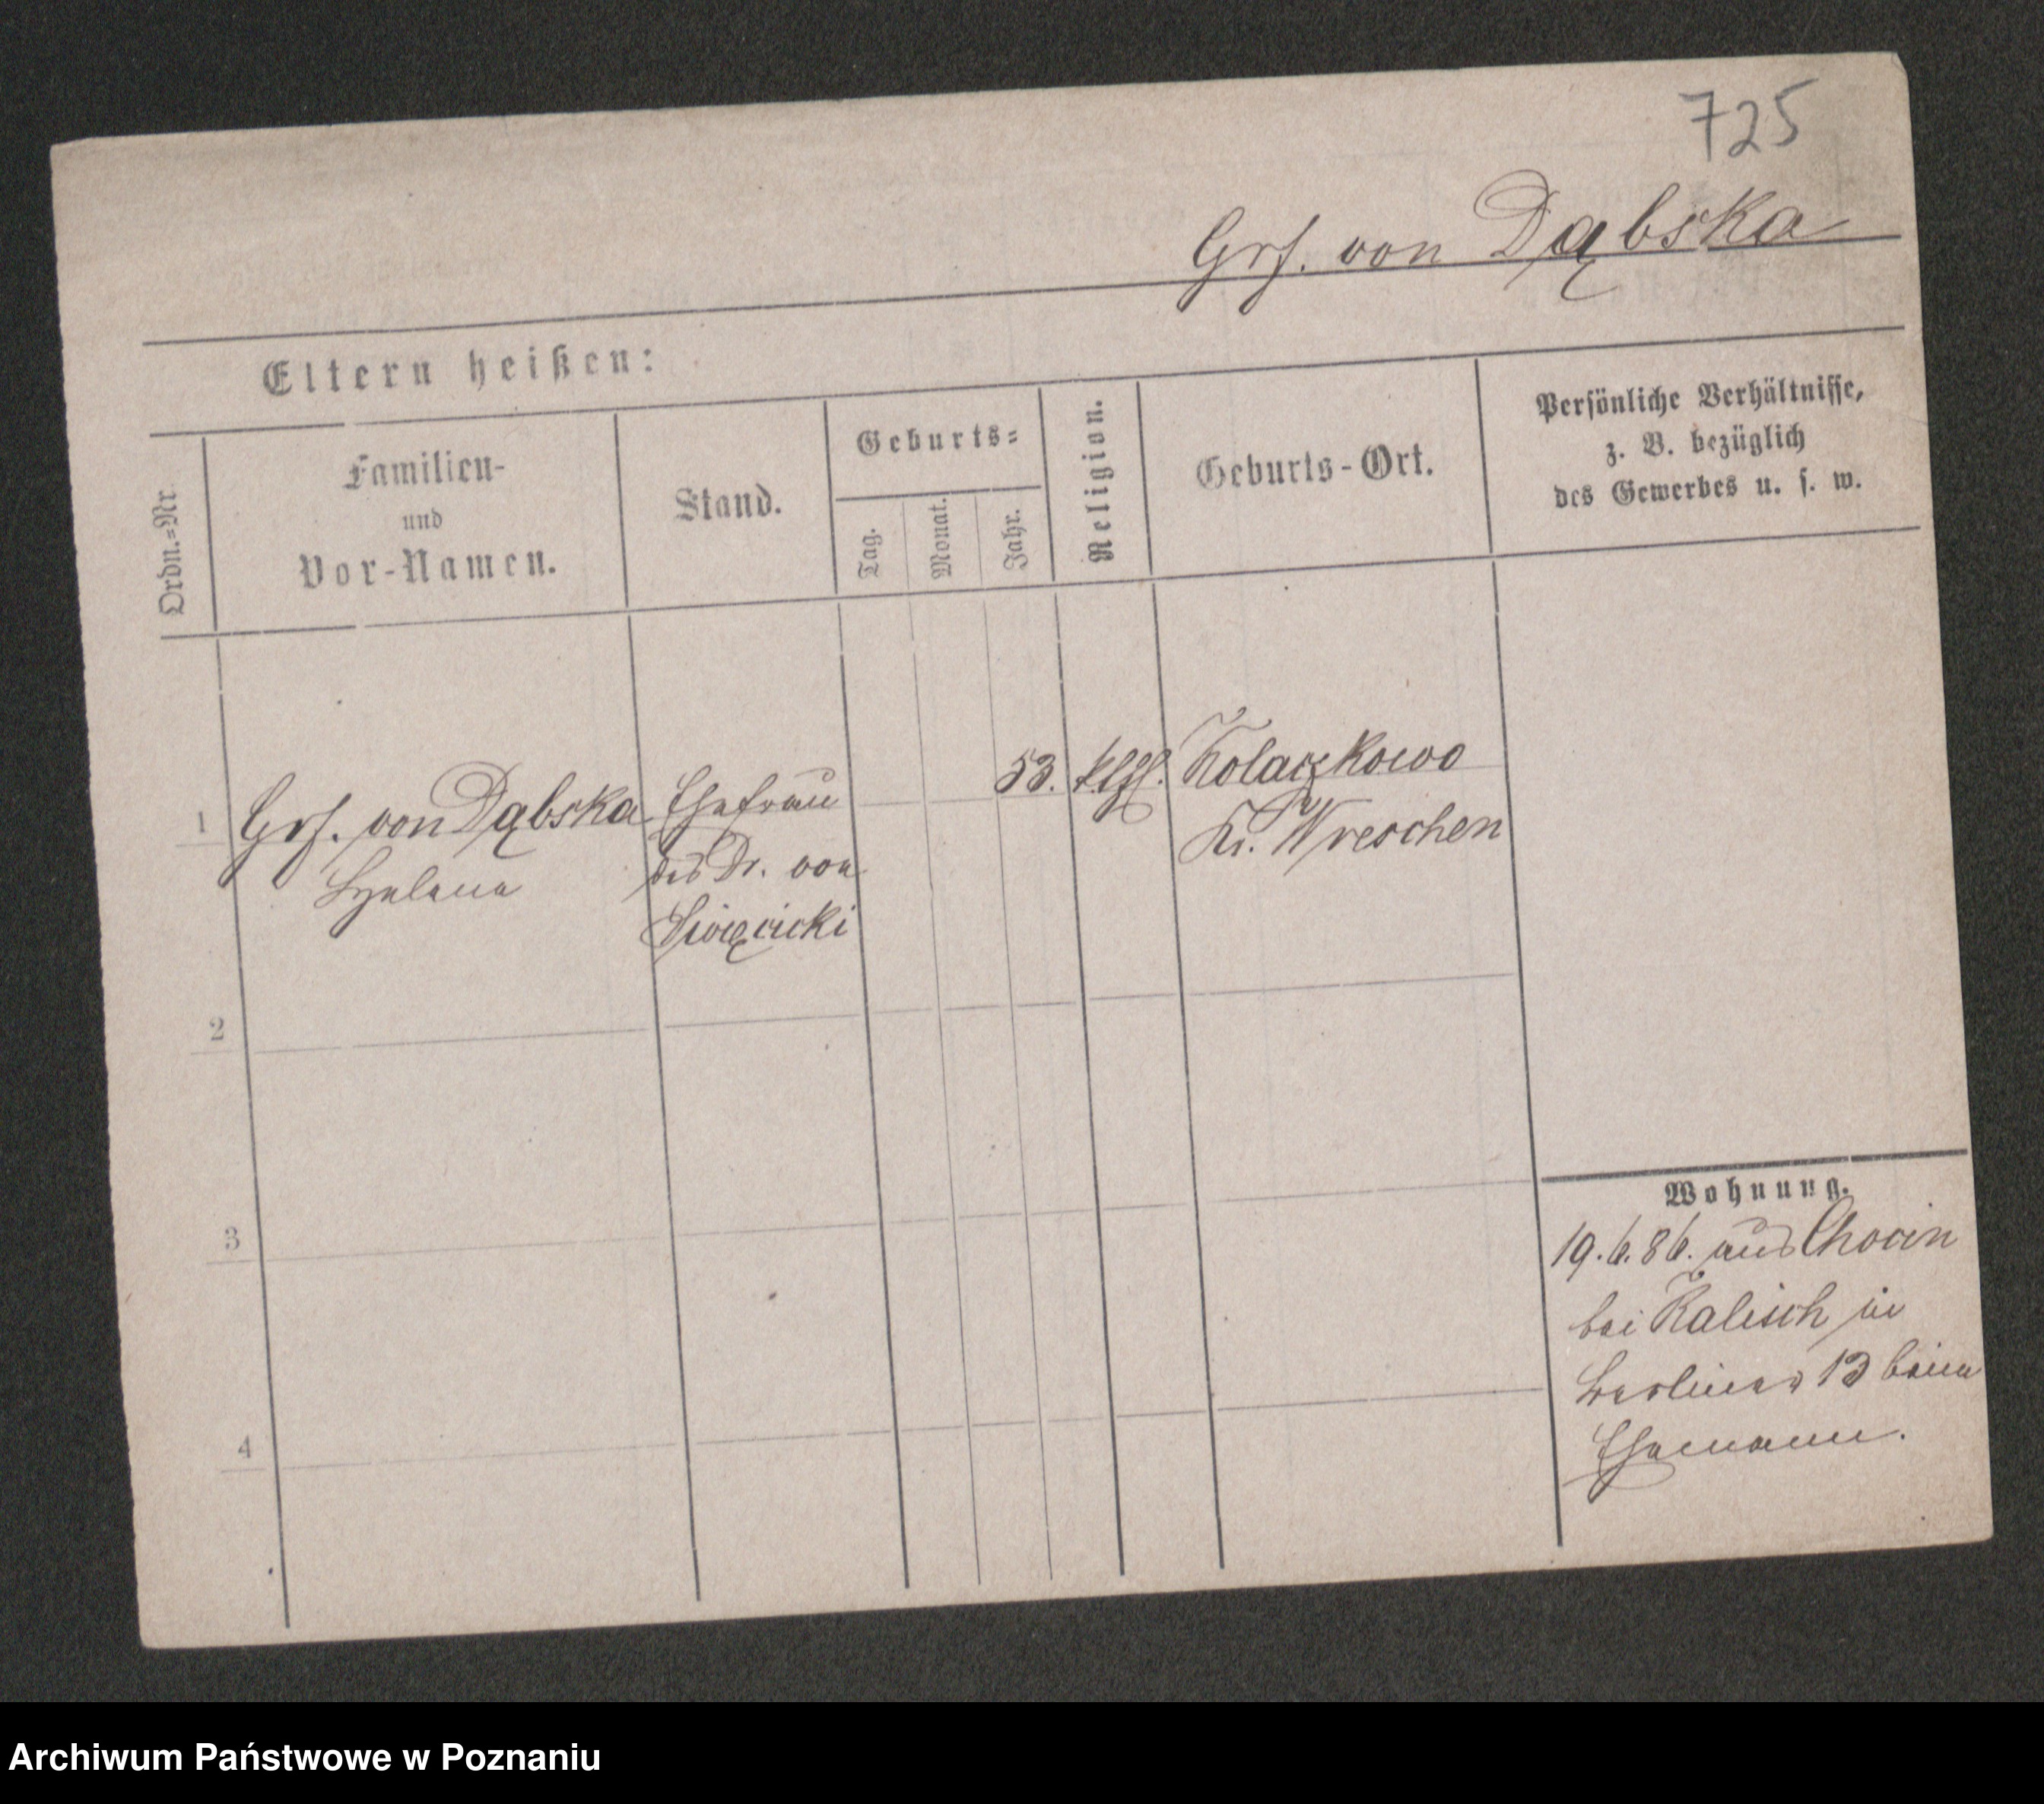 725
Grf. von Dąbska
Eltern heißen:
Ordn.=Nr.
Familien-
und
Vor-Namen.
Stand.
Geburts=
Tag.
Monat.
Jahr.
Religion.
Geburts-Ort.
Persönliche Verhältnisse,
z. B. bezüglich
des Gewerbes u. s. w.
1
Grf. von Dąbska
Helena
Ehefrau
des Dr. von
Święcicki
53.
kthl.
Kolaczkowo
Kr. Wreschen
2
3
4
Wohnung.
19.6.86. aus Chocin
bei Kalisch in
Berliner 13 beim
Ehemann.
Archiwum Państwowe w Poznaniu